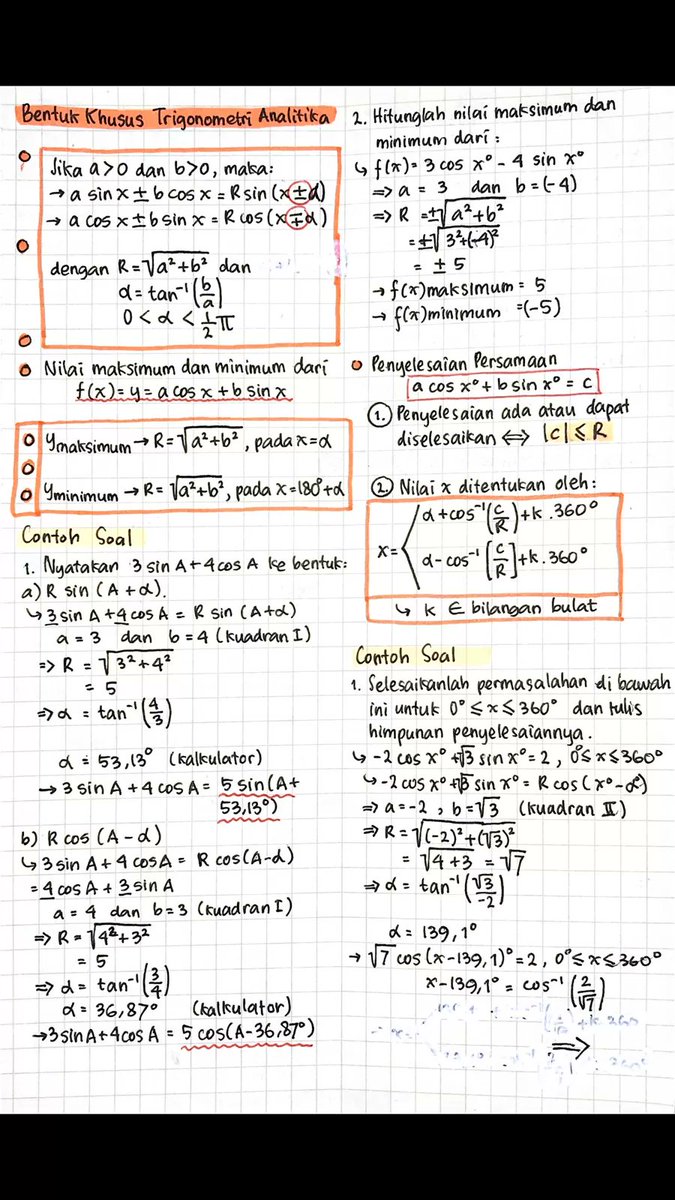 Bentuk Khusus Trigonometri Analitika
Jika a>0 dan b>0, maka:
→ a sin x ± b cos x = R sin (x ± α)
→ a cos x ± b sin x = R cos (x ∓ α)
dengan R = √a²+b² dan
α = tan⁻¹ (b/a)
0 < α < 1/2 π
Nilai maksimum dan minimum dari
f(x) = y = a cos x + b sin x
y maksimum → R = √a²+b², pada x = α
y minimum → R = √a²+b², pada x = 180° + α
Contoh Soal
1. Nyatakan 3 sin A + 4 cos A ke bentuk:
a) R sin (A + α).
↪ 3 sin A + 4 cos A = R sin (A+α)
a = 3 dan b = 4 (kuadran I)
⇒ R = √3²+4²
= 5
⇒ α = tan⁻¹ (4/3)
α = 53,13° (kalkulator)
→ 3 sin A + 4 cos A = 5 sin (A +
53,13°)
b) R cos (A - α)
↪ 3 sin A + 4 cos A = R cos (A-α)
= 4 cos A + 3 sin A
a = 4 dan b = 3 (kuadran I)
⇒ R = √4²+3²
= 5
⇒ α = tan⁻¹ (3/4)
α = 36,87° (kalkulator)
→ 3 sin A + 4 cos A = 5 cos (A - 36,87°)
2. Hitunglah nilai maksimum dan
minimum dari:
↪ f(x) = 3 cos x° - 4 sin x°
⇒ a = 3 dan b = (-4)
⇒ R = ±√a²+b²
= ±√3²+(-4)²
= ± 5
→ f(x) maksimum = 5
→ f(x) minimum = (-5)
Penyelesaian Persamaan
a cos x° + b sin x° = c
1. Penyelesaian ada atau dapat
diselesaikan ⇔ |c| ≤ R
2. Nilai x ditentukan oleh:
α + cos⁻¹ (c/R) + k . 360°
x =
α - cos⁻¹ [c/R] + k . 360°
↪ k ∈ bilangan bulat
Contoh Soal
1. Selesaikanlah permasalahan di bawah
ini untuk 0° ≤ x ≤ 360° dan tulis
himpunan penyelesaiannya.
↪ -2 cos x° + √3 sin x° = 2, 0° ≤ x ≤ 360°
↪ -2 cos x° + √3 sin x° = R cos (x° - α°)
⇒ a = -2, b = √3 (kuadran II)
⇒ R = √(-2)²+(√3)²
= √4+3 = √7
⇒ α = tan⁻¹ (√3/-2)
α = 139,1°
→ √7 cos (x - 139,1)° = 2, 0° ≤ x ≤ 360°
x - 139,1° = cos⁻¹ (2/√7)
⇒